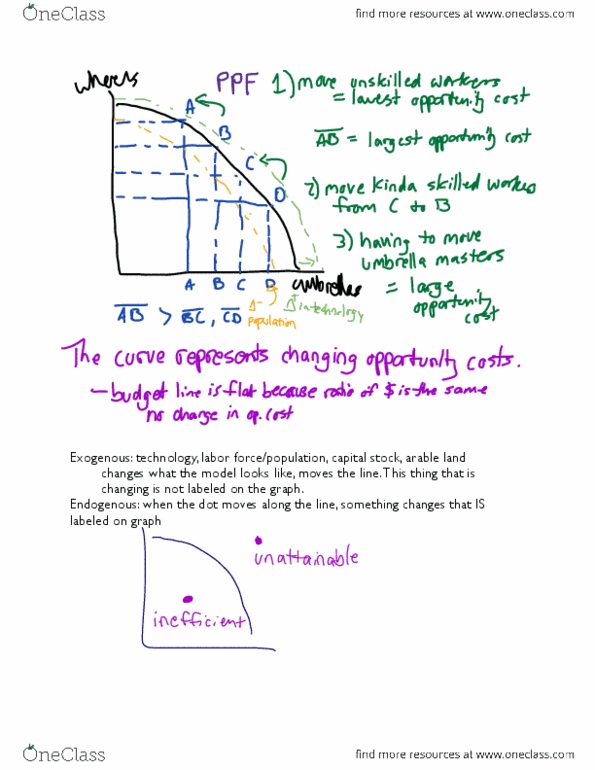 OneClass
find more resources at www.oneclass.com
wheels
PPF
1) move unskilled workers
= lowest opportunity cost
AB = largest opportunity cost
2) move kinda skilled workers
from C to B
3) having to move
umbrella masters
= large
opportunity
cost
A
B
C
D
A B C D umbrellas
AB > BC, CD
Δ- population
Δ+ in technology
The curve represents changing opportunity costs.
- budget line is flat because ratio of $ is the same
no change in op. cost
Exogenous: technology, labor force/population, capital stock, arable land
changes what the model looks like, moves the line. This thing that is
changing is not labeled on the graph.
Endogenous: when the dot moves along the line, something changes that IS
labeled on graph
unattainable
inefficient
OneClass
find more resources at www.oneclass.com